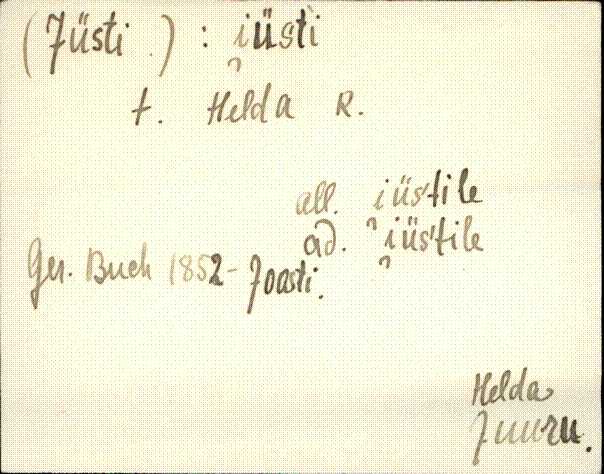 (Jüsti.) : i̯üsti
t. Helda R.
all. i̯üśtile
ad. i̯üśtile
Ger. Buch 1852- Joasti.
Helda
Juuru.